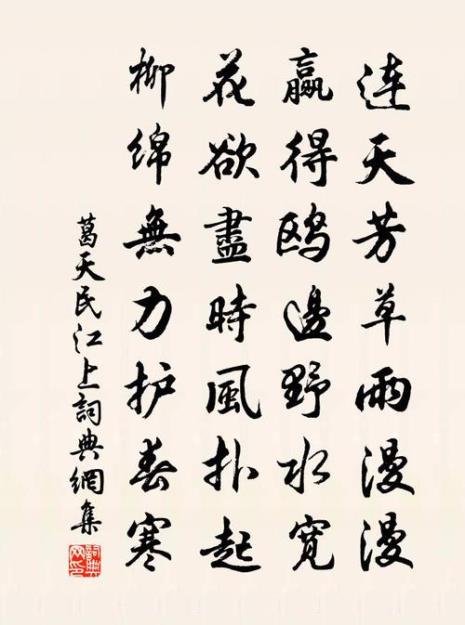 連天芳草雨漫漫
贏得鸥邊野水寬
花欲盡時風扑起
柳绵無力护春寒
葛天民江上詞典網集
詞典網印